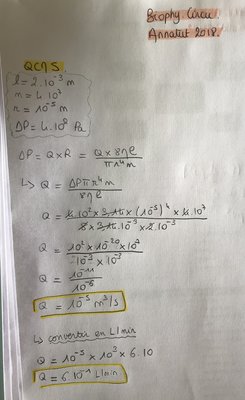 Biophy Circu.
Annatut 2018.
QCM 5.
l = 2.10⁻³ m
n = 4.10⁷
r = 10⁻⁵ m
ΔP = 4.10² Pa
ΔP = Q × R = Q × 8ηl / πr⁴n
↳ Q = ΔPπr⁴n / 8ηl
Q = 4.10² × 3,14 × (10⁻⁵)⁴ × 4.10⁷ / 8 × 3,14.10⁻³ × 2.10⁻³
Q = 10² × 10⁻²⁰ × 10⁷ / 10⁻³ × 10⁻³
Q = 10⁻¹¹ / 10⁻⁶
Q = 10⁻⁵ m³/s
↳ convertir en L/min
Q = 10⁻⁵ × 10³ × 6.10
Q = 6.10⁻¹ L/min